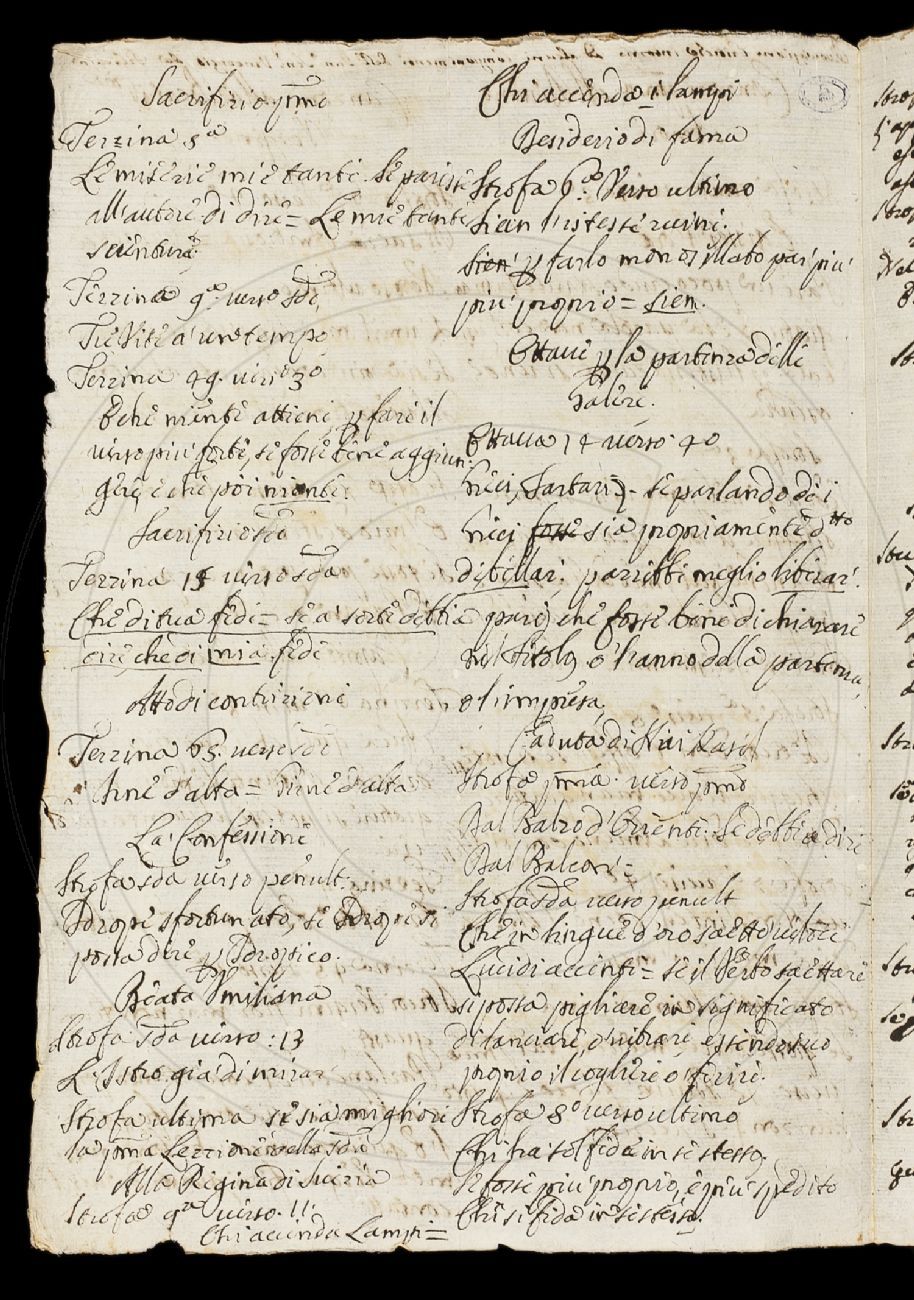 Sacrifizio p.mo
Terzina 5.a
Le miserie mie tante. Se paresse
all'autore di dire = Le mie tante
sventure
Terzina 9.a verso sdo
Tre Vite a un tempo
Terzina 49. verso 3o
Che niente attieni, p fare il
verso più forte, se fosse bene aggiun-
gere, e che poi niente.
Sacrifizio sdo
Terzina 15 verso sdo
Che di tua fede = se a sorte debbia
dire, che di mia fede
Atto di contrizione
Terzina 65. verso sdo
La Confessione
Strofa sda verso penult.
Idrope sfortunato, se Idrope si
possa dire p Idropico.
Beata Umiliana
Strofa sda verso: 13
L'Istro già di mirar
Strofa ultima se sia migliore
la p.ma Lezzione o della sda
Alla Regina di Svezia
Strofa 9.a verso 11.
Chi accenda Lampi =
Chi accenda i lampi
Desiderio di fama
Strofa 6.a Verso ultimo
Sien l'istesse ruine.
Sien p farlo monosillabo par più
più proprio = sien.
Ottave p la partenza delle
Galere.
Ottava 14 verso 4o
Greci, Tartari - se parlando de i
Greci fosse sia propriamente dtto
debellar; parrebbe meglio liberar.
pare che fosse bene dichiarare
nel titolo o l'anno della partenza,
o l'impresa,
Caduta di
Strofa p.ma verso p.mo
Dal Balzo d'Oriente. Se debbia dire
Dal Balcon =
Strofa sda verso penult
Che in lingue d'oro saetto veloce
Lucidi accenti = se il Verbo saettare
si possa pigliare in significato
di lanciare o vibrare, essendo suo
proprio il cogliere o ferire.
Strofa 8.a verso ultimo
Chi ha sol fida in se stesso.
Se fosse più proprio, e più spedito
Chi si fida in se stesso.